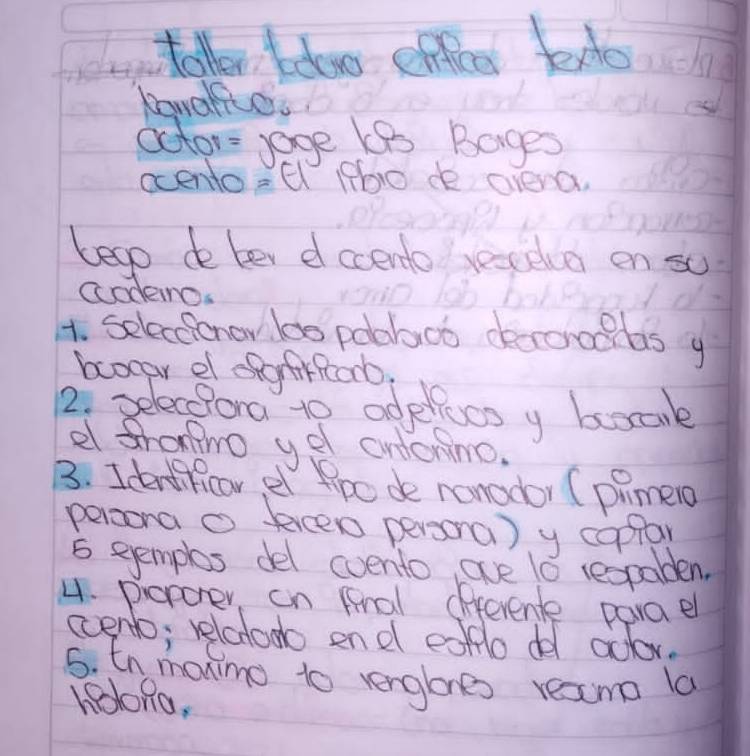 taller lectura crítica texto
narrativo.
autor= jorge luis Borges
cuento= El libro de arena.
luego de leer el cuento resuelva en su
cuaderno.
1. Seleccionar las palabras desconocidas y
buscar el significado.
2. Selecciona 10 adjetivos y buscarle
el sinonimo y el antonimo.
3. Identificar el tipo de narrador (primera
persona o tercera persona) y copiar
5 ejemplos del cuento que lo respalden.
4. proponer un final diferente para el
cuento; relatado en el estilo del autor.
5. En maximo 10 renglones resuma la
historia.